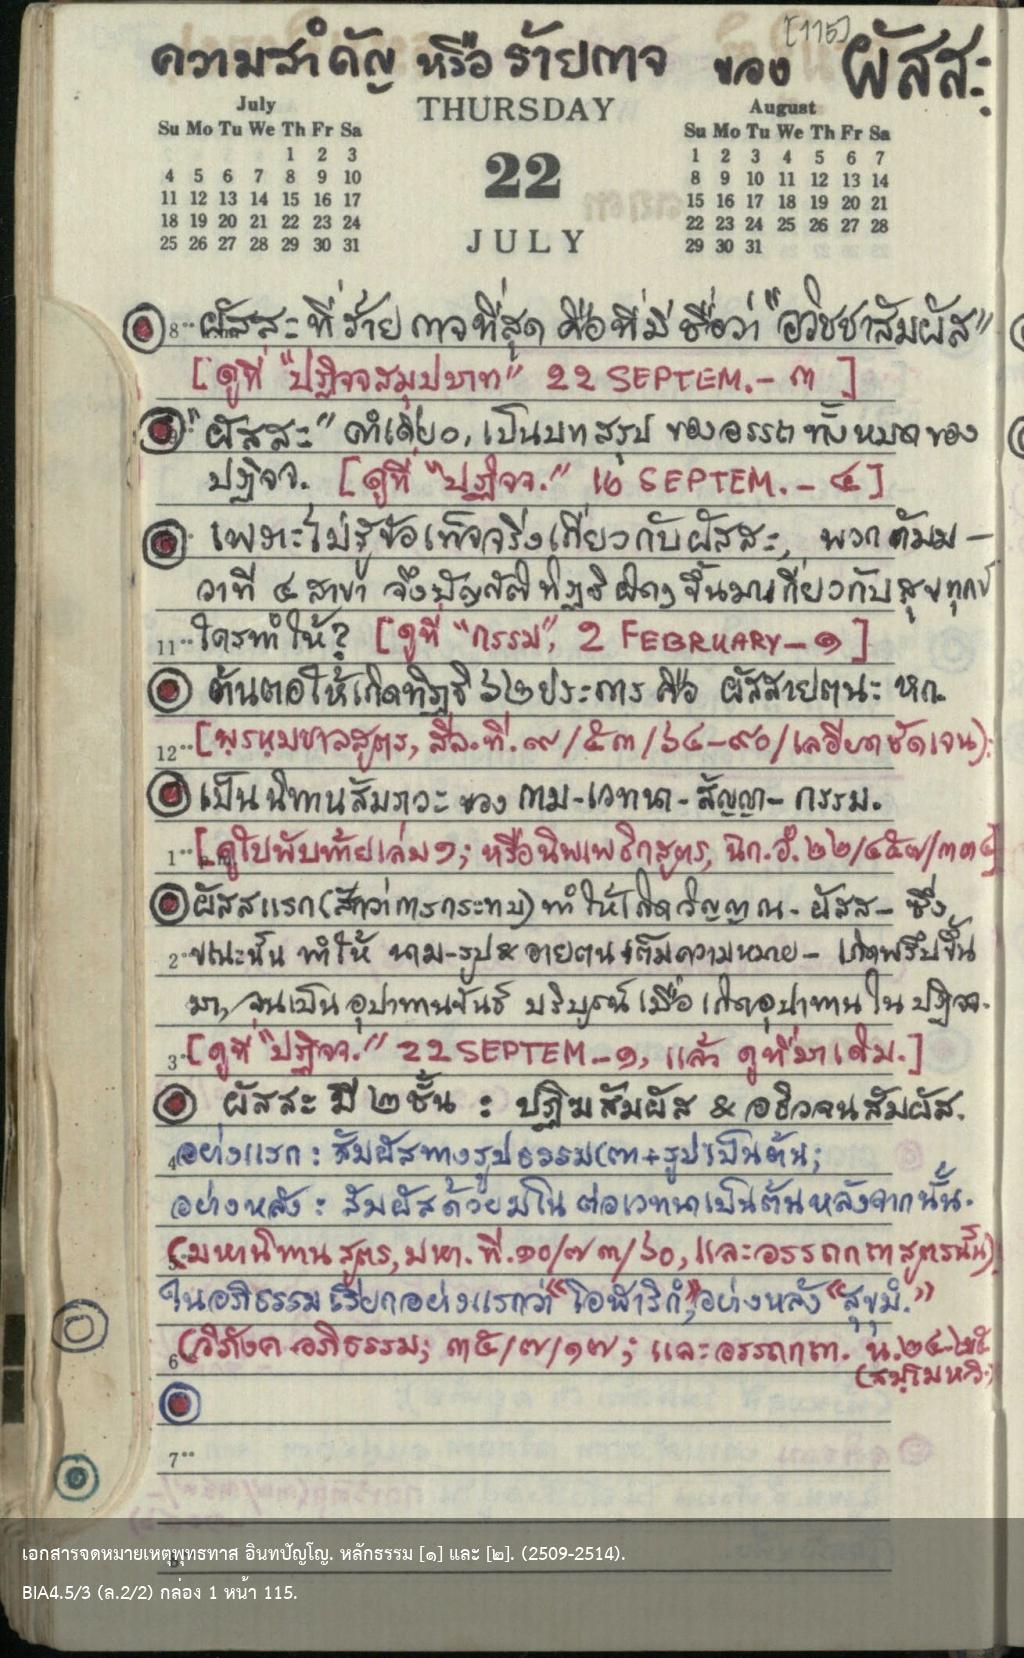 [115]
ความสำคัญ หรือ ร้ายกาจ ของ ผัสสะ
July
Su Mo Tu We Th Fr Sa
1 2 3
4 5 6 7 8 9 10
11 12 13 14 15 16 17
18 19 20 21 22 23 24
25 26 27 28 29 30 31
THURSDAY
22
JULY
August
Su Mo Tu We Th Fr Sa
1 2 3 4 5 6 7
8 9 10 11 12 13 14
15 16 17 18 19 20 21
22 23 24 25 26 27 28
29 30 31
8 ผัสสะที่ร้ายกาจที่สุด คือที่มีชื่อว่า "อวิชชาสัมผัส"
[ดูที่ "ปฏิจจสมุปบาท" 22 SEPTEM.- ๓ ]
"ผัสสะ" คำเดียว, เป็นบทสรุป ของอรรถทั้งหมดของ
ปฏิจจ. [ดูที่ "ปฏิจจ." 16 SEPTEM. – ๔]
เพราะไม่รู้ข้อเท็จจริงเกี่ยวกับผัสสะ, พวกกัมม–
วาที ๔ สาขา จึงบัญญัติทิฏฐิผิดๆขึ้นมาเกี่ยวกับสุขทุกข์
11 ใครทำให้? [ดูที่ "กรรม", 2 FEBRUARY – ๑ ]
ต้นตอให้เกิดทิฏฐิ ๖๒ ประการ คือ ผัสสายตนะ หก.
12 [พรหมชาลสูตร, สีล.ที.๙/๕๓/๖๔–๙๐/ละเอียดชัดเจน]:
เป็นนิทานสัมภวะ ของ กาม-เวทนา-สัญญา-กรรม.
1 [ดูใบพับท้ายเล่ม ๑; หรือนิพเพธิกสูตร, ฉัก.อํ.๒๒/๔๕๗/๓๓๔]
ผัสสแรก(สักว่าการกระทบ)ทำให้เกิดวิญญาณ- ผัสส- ซึ่ง
2 ขณะนั้น ทำให้ นาม-รูป & อายตน เต็มความหมาย– เกิดพรึบขึ้น
มา, จนเป็นอุปาทานขันธ์ บริบูรณ์ เมื่อเกิดอุปาทาน ใน ปฏิจจ.
3 [ดูที่ "ปฏิจจ." 22 SEPTEM – ๑, แล้ว ดูที่มาเดิม.]
ผัสสะ มี ๒ ชั้น : ปฏิฆสัมผัส & อธิวจนสัมผัส.
4 อย่างแรก : สัมผัสทางรูปธรรม(ตา+รูป)เป็นต้น;
อย่างหลัง : สัมผัสด้วยมโน ต่อเวทนาเป็นต้นหลังจากนั้น.
5 (มหานิทานสูตร, มหา.ที.๑๐/๗๓/๖๐, และอรรถกถาสูตรนั้น)
ในอภิธรรม เรียกอย่างแรกว่า "โอฬาริกํ", อย่างหลัง "สุขุมํ."
6 (วิภังค อภิธรรม; ๓๕/๗/๑๗; และอรรถกถา. น.๒๔-๒๕
(สมฺโมหวิ.)
7
8
เอกสารจดหมายเหตุพุทธทาส อินทปัญโญ. หลักธรรม [๑] และ [๒]. (2509-2514).
BIA4.5/3 (ล.2/2) กล่อง 1 หน้า 115.